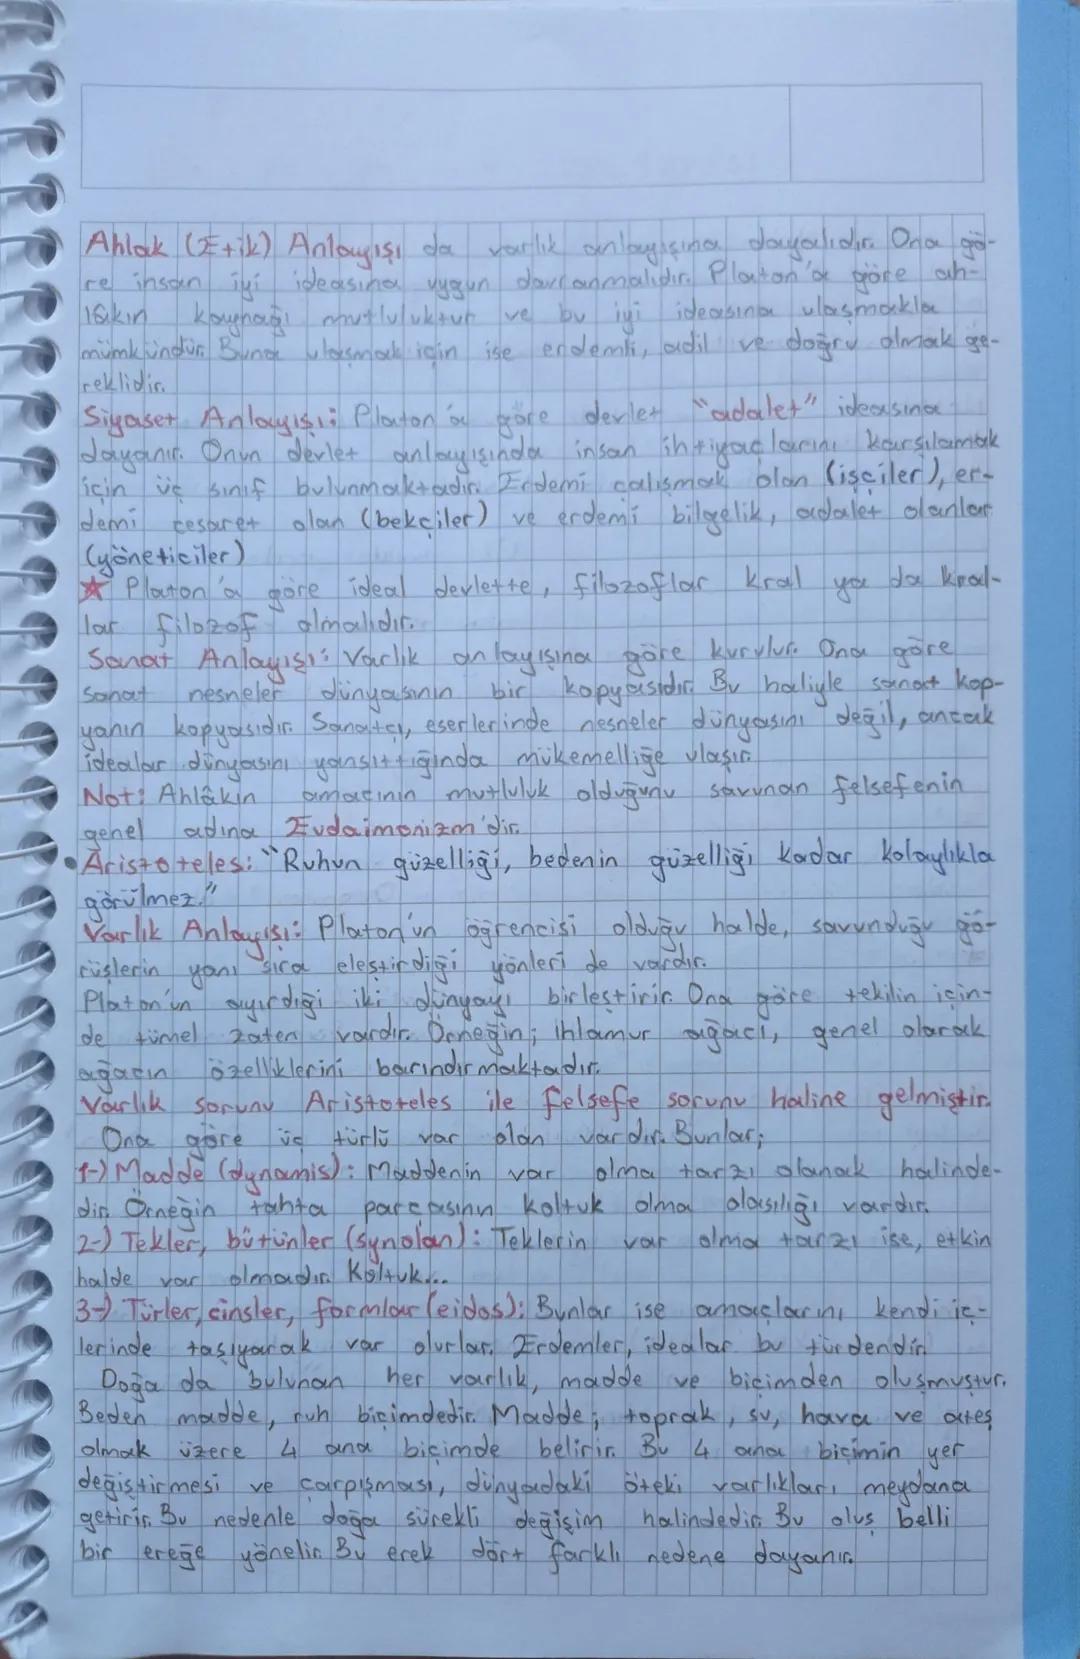 Ahlak (Etik) Anlayışı da varlık anlayışına dayalıdır. Ona gö-
re insan iyi ideasına uygun davranmalıdır. Platon'a göre ah-
lâkın kaynağı mutluluktur ve bu iyi ideasına ulaşmakla
mümkündür. Buna ulaşmak için ise erdemli, adil ve doğru olmak ge-
reklidir.
Siyaset Anlayışı: Platon'a göre devlet "adalet" ideasına
dayanır. Onun devlet anlayışında insan ihtiyaçlarını karşılamak
için üç sınıf bulunmaktadır. Erdemi çalışmak olan (işçiler), er-
demi cesaret olan (bekçiler) ve erdemi bilgelik, adalet olanlar
(yöneticiler)
★ Platon'a göre ideal devlette, filozoflar kral ya da kral-
lar filozof olmalıdır.
Sanat Anlayışı: Varlık anlayışına göre kurulur. Ona göre
sanat nesneler dünyasının bir kopyasıdır. Bu haliyle sanat kop-
yanın kopyasıdır. Sanatçı, eserlerinde nesneler dünyasını değil, ancak
idealar dünyasını yansıttığında mükemelliğe ulaşır.
Not: Ahlâkın amacının mutluluk olduğunu savunan felsefenin
genel adına Eudaimonizm'dir.
• Aristoteles: "Ruhun güzelliği, bedenin güzelliği kadar kolaylıkla
görülmez."
Varlık Anlayışı: Platon'un öğrencisi olduğu halde, savunduğu gö-
rüşlerin yanı sıra eleştirdiği yönleri de vardır.
Platon'un ayırdığı iki dünyayı birleştirir. Ona göre tekilin için-
de tümel zaten vardır. Örneğin; ıhlamur ağacı, genel olarak
ağacın özelliklerini barındırmaktadır.
Varlık sorunu Aristoteles ile felsefe sorunu haline gelmiştir.
Ona göre üç türlü var olan vardır. Bunlar;
1-) Madde (dynamis): Maddenin var olma tarzı olanak halinde-
dir. Örneğin tahta parçasının koltuk olma olasılığı vardır.
2-) Tekler, bütünler (synolan): Teklerin var olma tarzı ise, etkin
halde var olmadır. Koltuk...
3-) Türler, cinsler, formlar (eidos): Bunlar ise amaçlarını kendi iç-
lerinde taşıyarak var olurlar. Erdemler, idealar bu türdendir.
Doğa da bulunan her varlık, madde ve biçimden oluşmuştur.
Beden madde, ruh biçimdedir. Madde; toprak, su, hava ve ateş
olmak üzere 4 ana biçimde belirir. Bu 4 ana biçimin yer
değiştirmesi ve çarpışması, dünyadaki öteki varlıkları meydana
getirir. Bu nedenle doğa sürekli değişim halindedir. Bu oluş belli
bir ereğe yönelir. Bu erek dört farklı nedene dayanır.